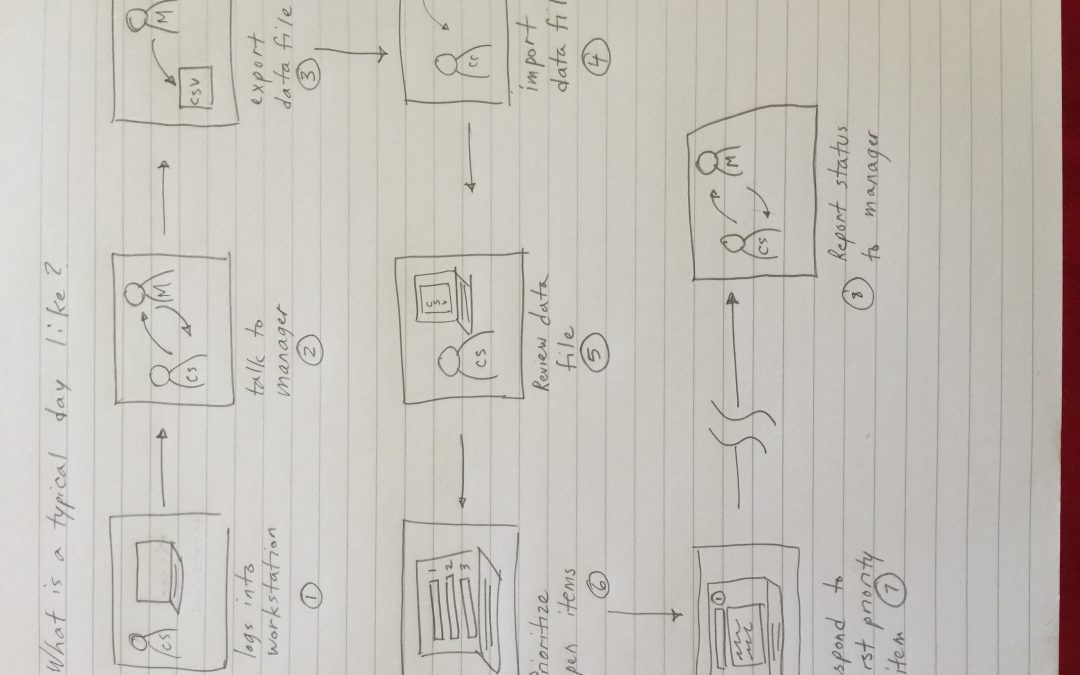 What is a typical day like?
CS
logs into
workstation
1
CS
M
talk to
manager
2
M
CSV
export
data file
3
CS
import
data fil
4
CS
CSV
Review data
file
5
1
2
3
ioritize
pen items
6
1
spond to
rst priority
item
7
CS
M
Report status
to manager
8